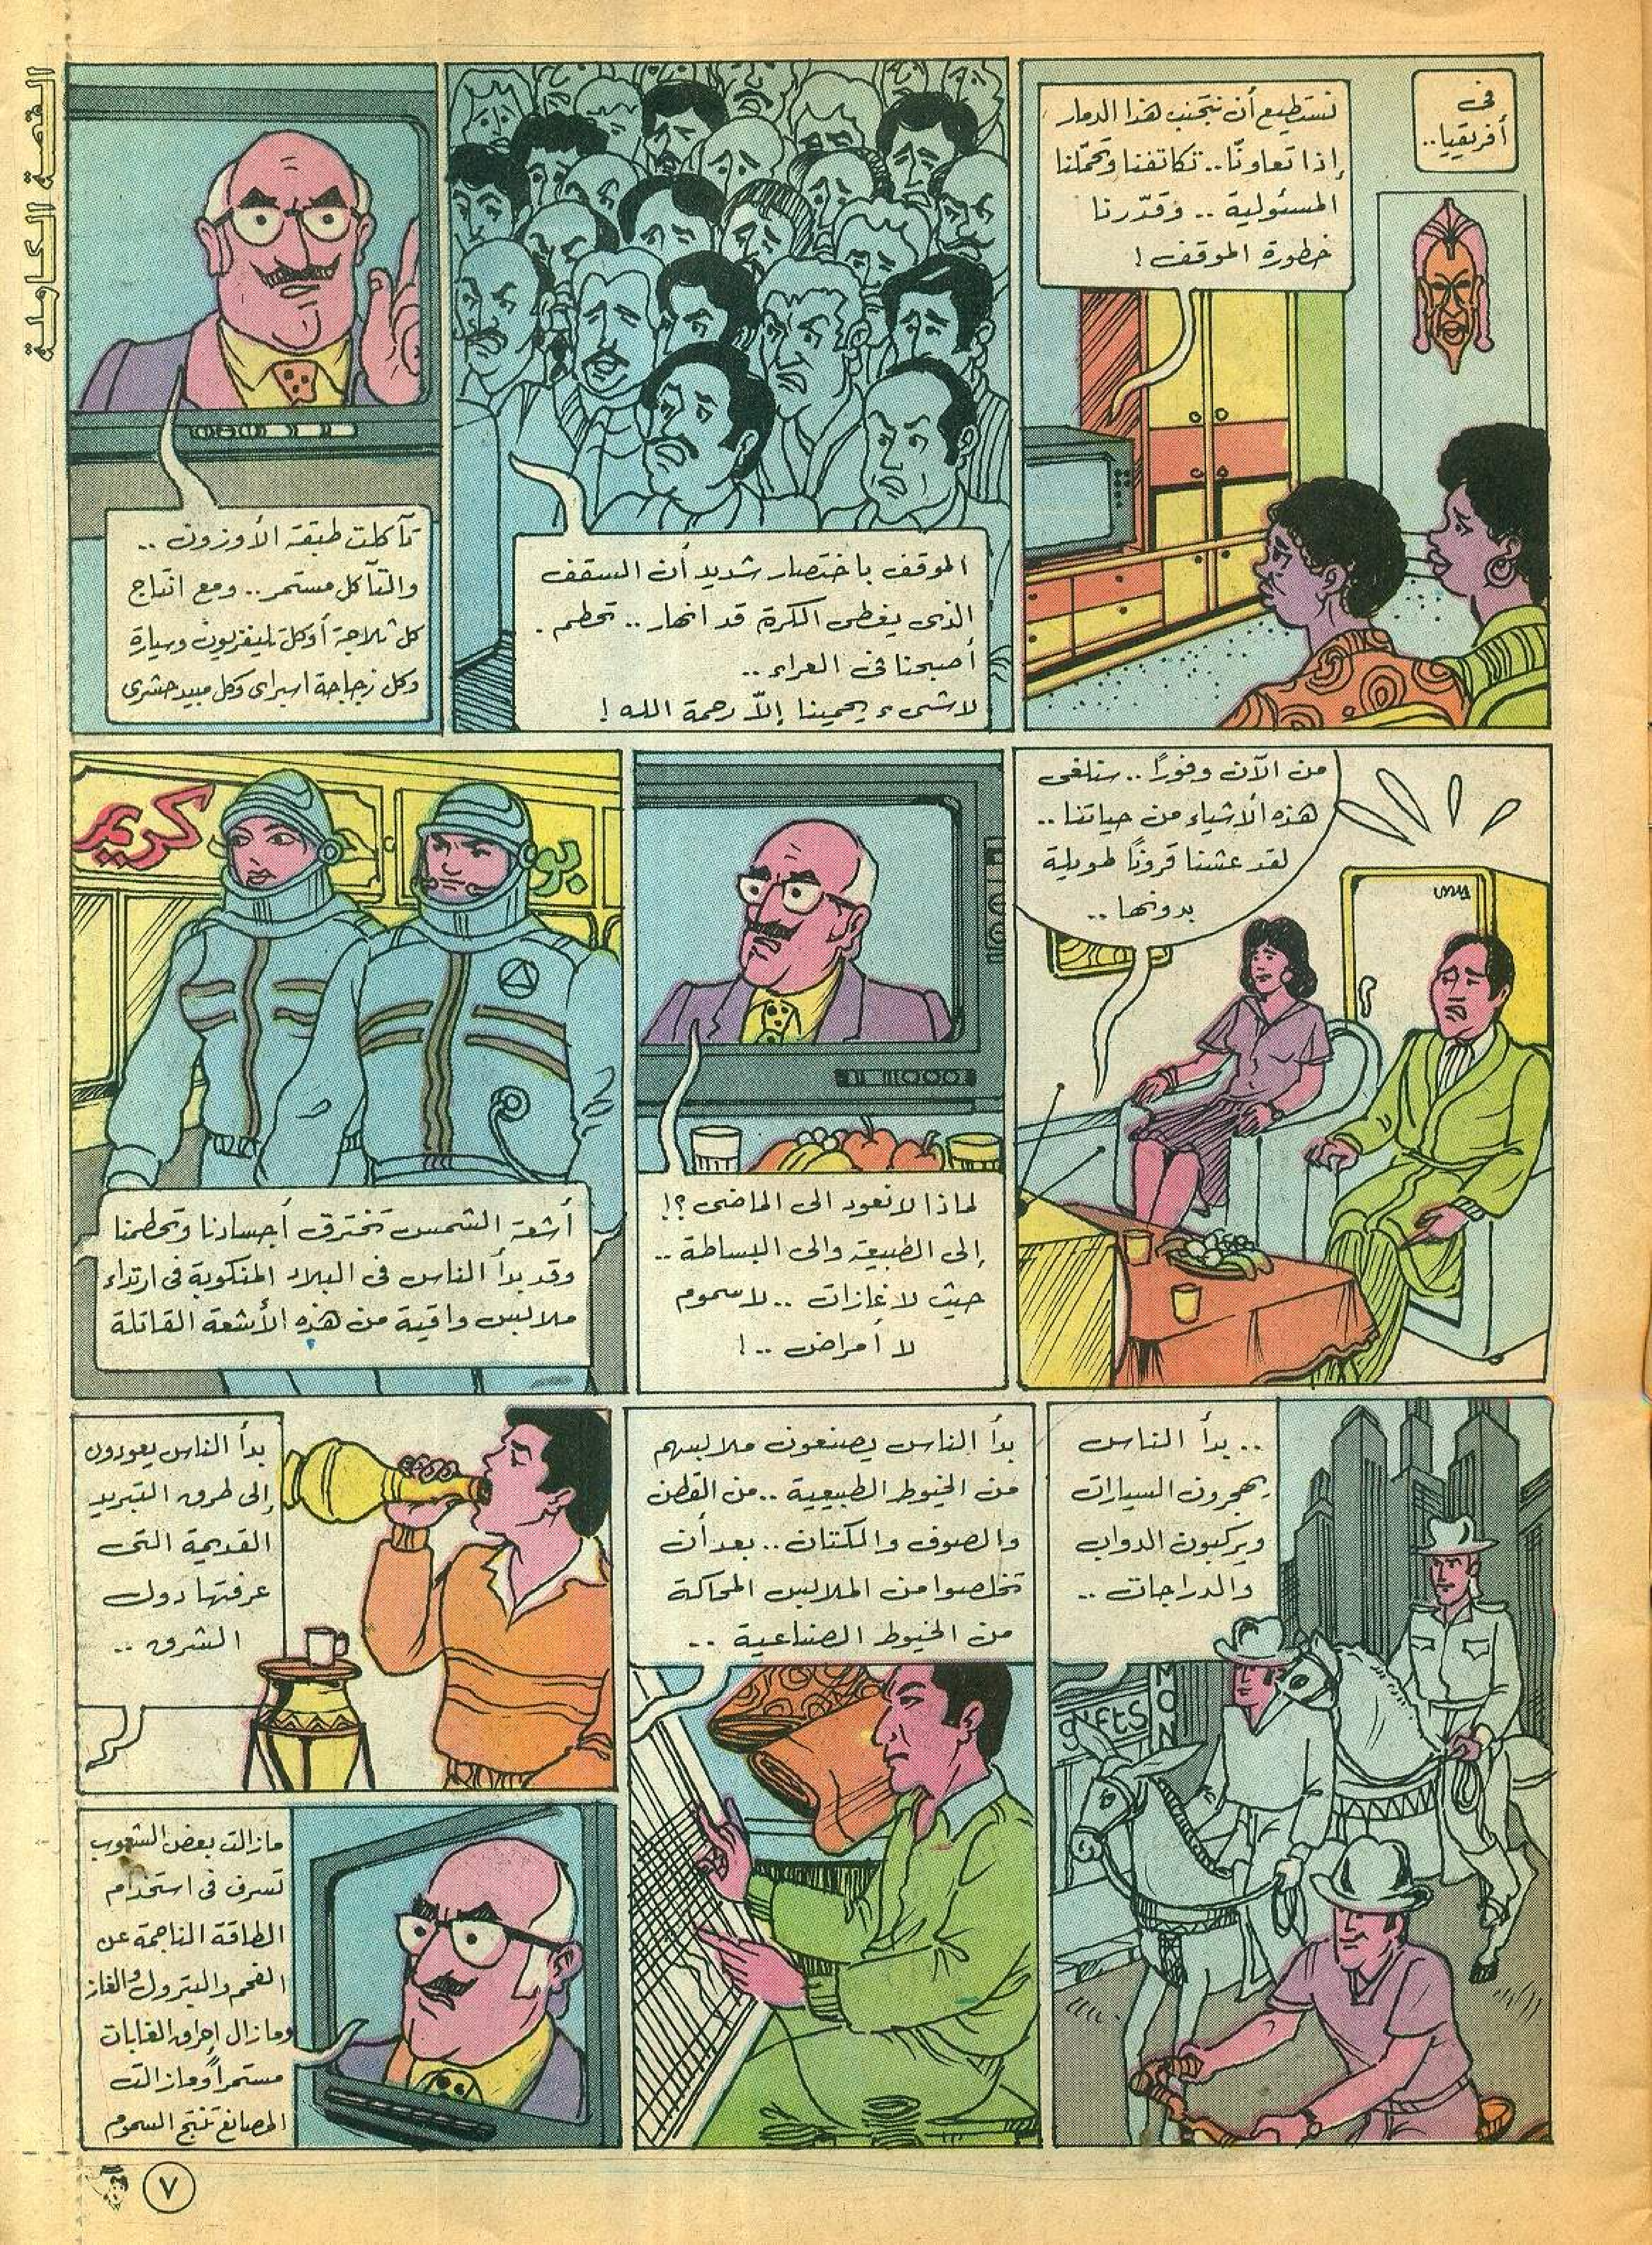 القصة الكاملة
فى
أفريقيا..
نستطيع أن نتجنب هذا الدمار
إذا تعاونّا.. تكاتفنا وتحمّلنا
المسئولية .. وقدّرنا
خطورة الموقف !
الموقف باختصار شديد أن السقف
الذى يغطى الكرة قد انهار .. تحطم .
أصبحنا فى العراء ..
لا شىء يحمينا إلاّ رحمة الله !
تآكلت طبقة الأوزون ..
والتآكل مستمر .. ومع انتاج
كل ثلاجة أو كل تليفزيون وسيارة
وكل زجاجة اسبراى وكل مبيد حشرى
من الآن وفوراً .. سنلغى
هذه الأشياء من حياتنا ..
لقد عشنا قروناً طويلة
بدونها ..
لماذا لا نعود الى الماضى ؟!
إلى الطبيعة والى البساطة ..
حيث لا غازات .. لا سموم
لا أمراض .. !
بو
كريم
أشعة الشمس تخترق أجسادنا وتحطمنا
وقد بدأ الناس فى البلاد المنكوبة فى ارتداء
ملابس واقية من هذه الأشعة القاتلة
.. بدأ الناس
يهجرون السيارات
ويركبون الدواب
والدراجات ..
gifts
MON
بدأ الناس يصنعون ملابسهم
من الخيوط الطبيعية .. من القطن
والصوف والكتان .. بعد أن
تخلصوا من الملابس المحاكة
من الخيوط الصناعية ..
بدأ الناس يعودون
إلى طرق التبريد
القديمة التى
عرفتها دول
الشرق ..
مازالت بعض الشعوب
تسرف فى استخدام
الطاقة الناجمة عن
الفحم والبترول والغاز
ومازال إحراق الغابات
مستمراً ومازالت
المصانع تنتج السموم
٧